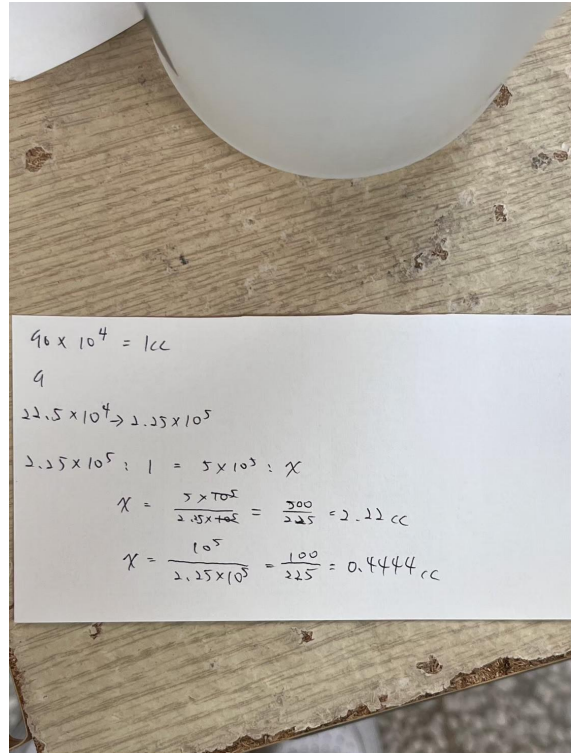 90 × 10⁴ = 1cc
9
22.5 × 10⁴ → 2.25 × 10⁵
2.25 × 10⁵ : 1 = 5 × 10⁵ : x
x = 5 × 10⁵ / 2.25 × 10⁵ = 500 / 225 = 2.22 cc
x = 10⁵ / 2.25 × 10⁵ = 100 / 225 = 0.4444 cc